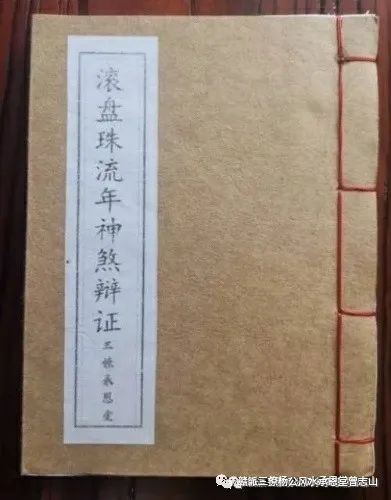 滚盘珠流年神煞辩证
三僚承恩堂
赣派三僚杨公风水承恩堂曾志山